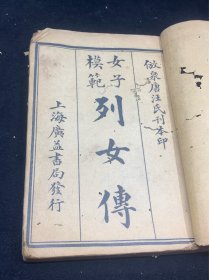 仿泉唐汪氏刊本印
女子模範
列女傳
上海廣益書局發行